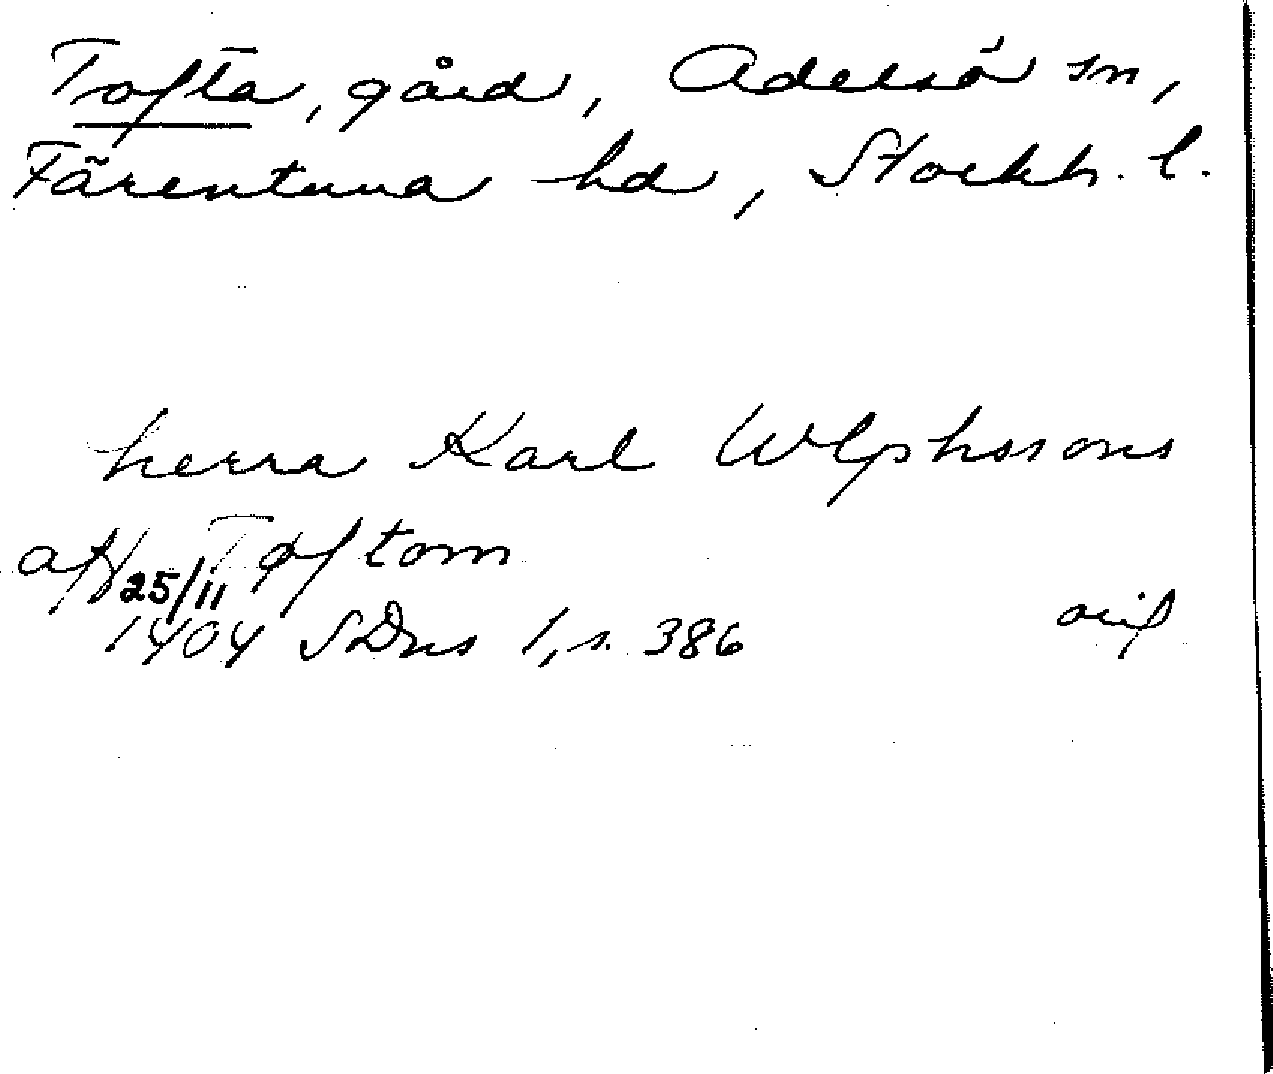 Tofta, gård, Adelsö sn,
Färentuna hd, Stockh. l.
herra Karl Wlphssons
aff Toftom
25/11
1404 SDns 1, s. 386
orig